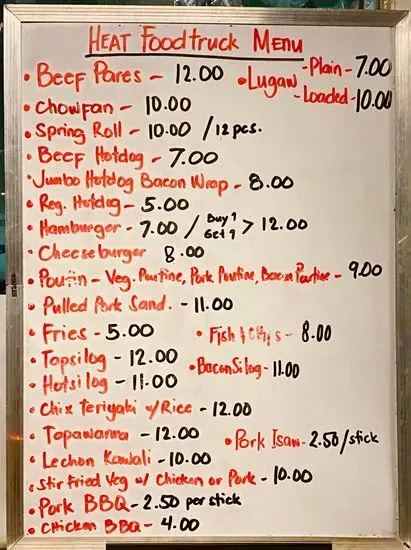 HEAT FOODTRUCK MENU
• Beef Pares - 12.00
• Lugaw - Plain - 7.00
- Loaded - 10.00
• Chowfan - 10.00
• Spring Roll - 10.00 / 12 pcs.
• Beef Hotdog - 7.00
• Jumbo Hotdog Bacon Wrap - 8.00
• Reg. Hotdog - 5.00
• Hamburger - 7.00 / Buy 1 Get 1 > 12.00
• Cheeseburger 8.00
• Poutin - Veg. Poutine, Pork Poutine, Bacon Poutine - 9.00
• Pulled Pork Sand. - 11.00
• Fries - 5.00
• Fish & Chips - 8.00
• Tapsilog - 12.00
• BaconSilog - 11.00
• Hotsilog - 11.00
• Chix Teriyaki w/Rice - 12.00
• Tapawarma - 12.00
• Pork Isaw - 2.50/stick
• Lechon Kawali - 10.00
• Stir Fried Veg w/ Chicken or Pork - 10.00
• Pork BBQ - 2.50 per stick
• Chicken BBQ - 4.00